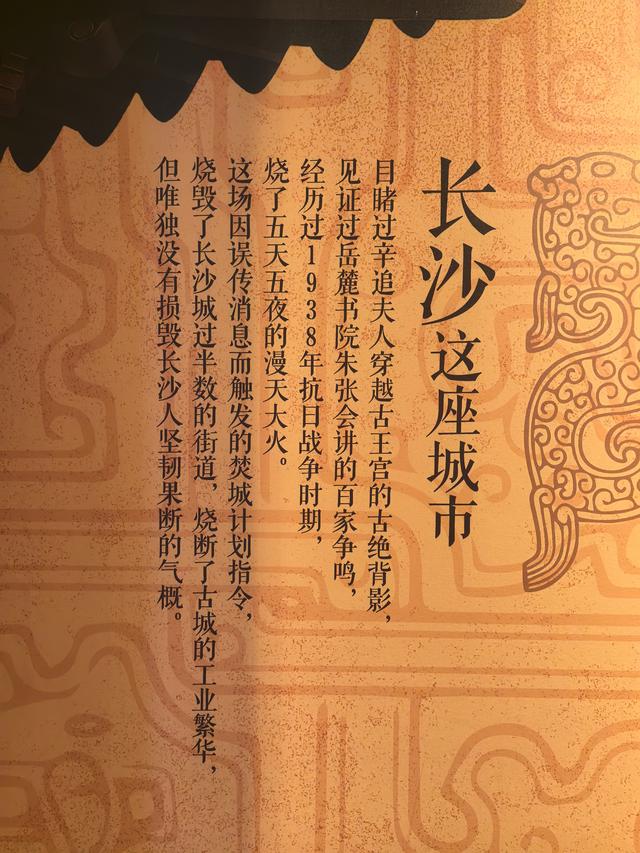 长沙这座城市
目睹过辛追夫人穿越古王宫的古绝背影，
见证过岳麓书院朱张会讲的百家争鸣，
经历过1938年抗日战争时期，
烧了五天五夜的漫天大火。
这场因误传消息而触发的焚城计划指令，
烧毁了长沙城过半数的街道，烧断了古城的工业繁华，
但唯独没有损毁长沙人坚韧果断的气概。